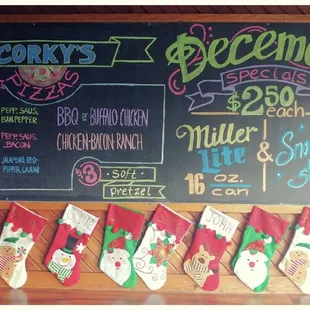 CORKY'S
PIZZAS
PEPP, SAUS,
BAN.PEPPER
PEPP, SAUS,
BACON
JALAPENO, RED-
PEPPER, CAJUN
BBQ or BUFFALO CHICKEN
CHICKEN-BACON-RANCH
$3 soft
pretzel
Decem
specials
$2.50
each
Miller
lite
16 oz.
can
&
JOHN